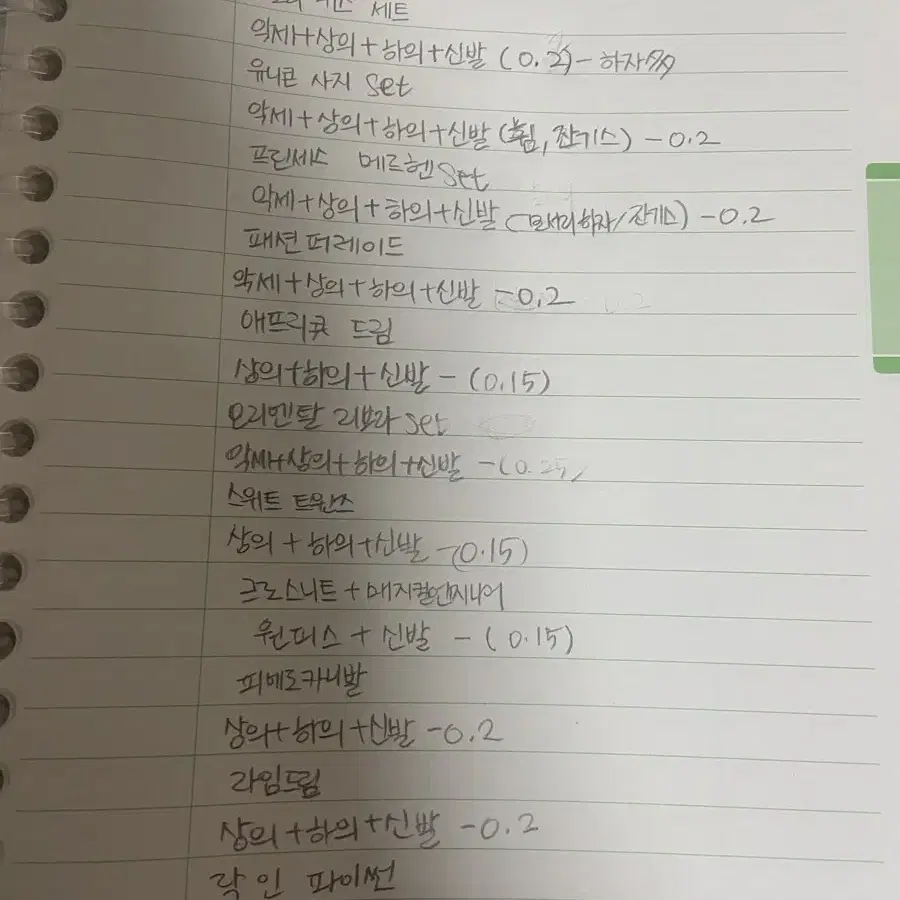 세트
악세+상의+하의+신발 (0.2)-하자多
유니콘 사지 Set
악세+상의+하의+신발 (휨, 잔기스) -0.2
프린세스 메르헨 Set
악세+상의+하의+신발 (모서리하자/잔기스) -0.2
패션퍼레이드
악세+상의+하의+신발 -0.2
애프리콧 드림
상의+하의+신발 - (0.15)
오리엔탈 리브라 Set
악세+상의+하의+신발 -(0.25)
스위트 트윈스
상의+하의+신발 -(0.15)
크로스니트+매지컬엔지니어
원피스+신발 - (0.15)
피베도카니발
상의+하의+신발 -0.2
라임드림
상의+하의+신발 -0.2
락 인 파이썬